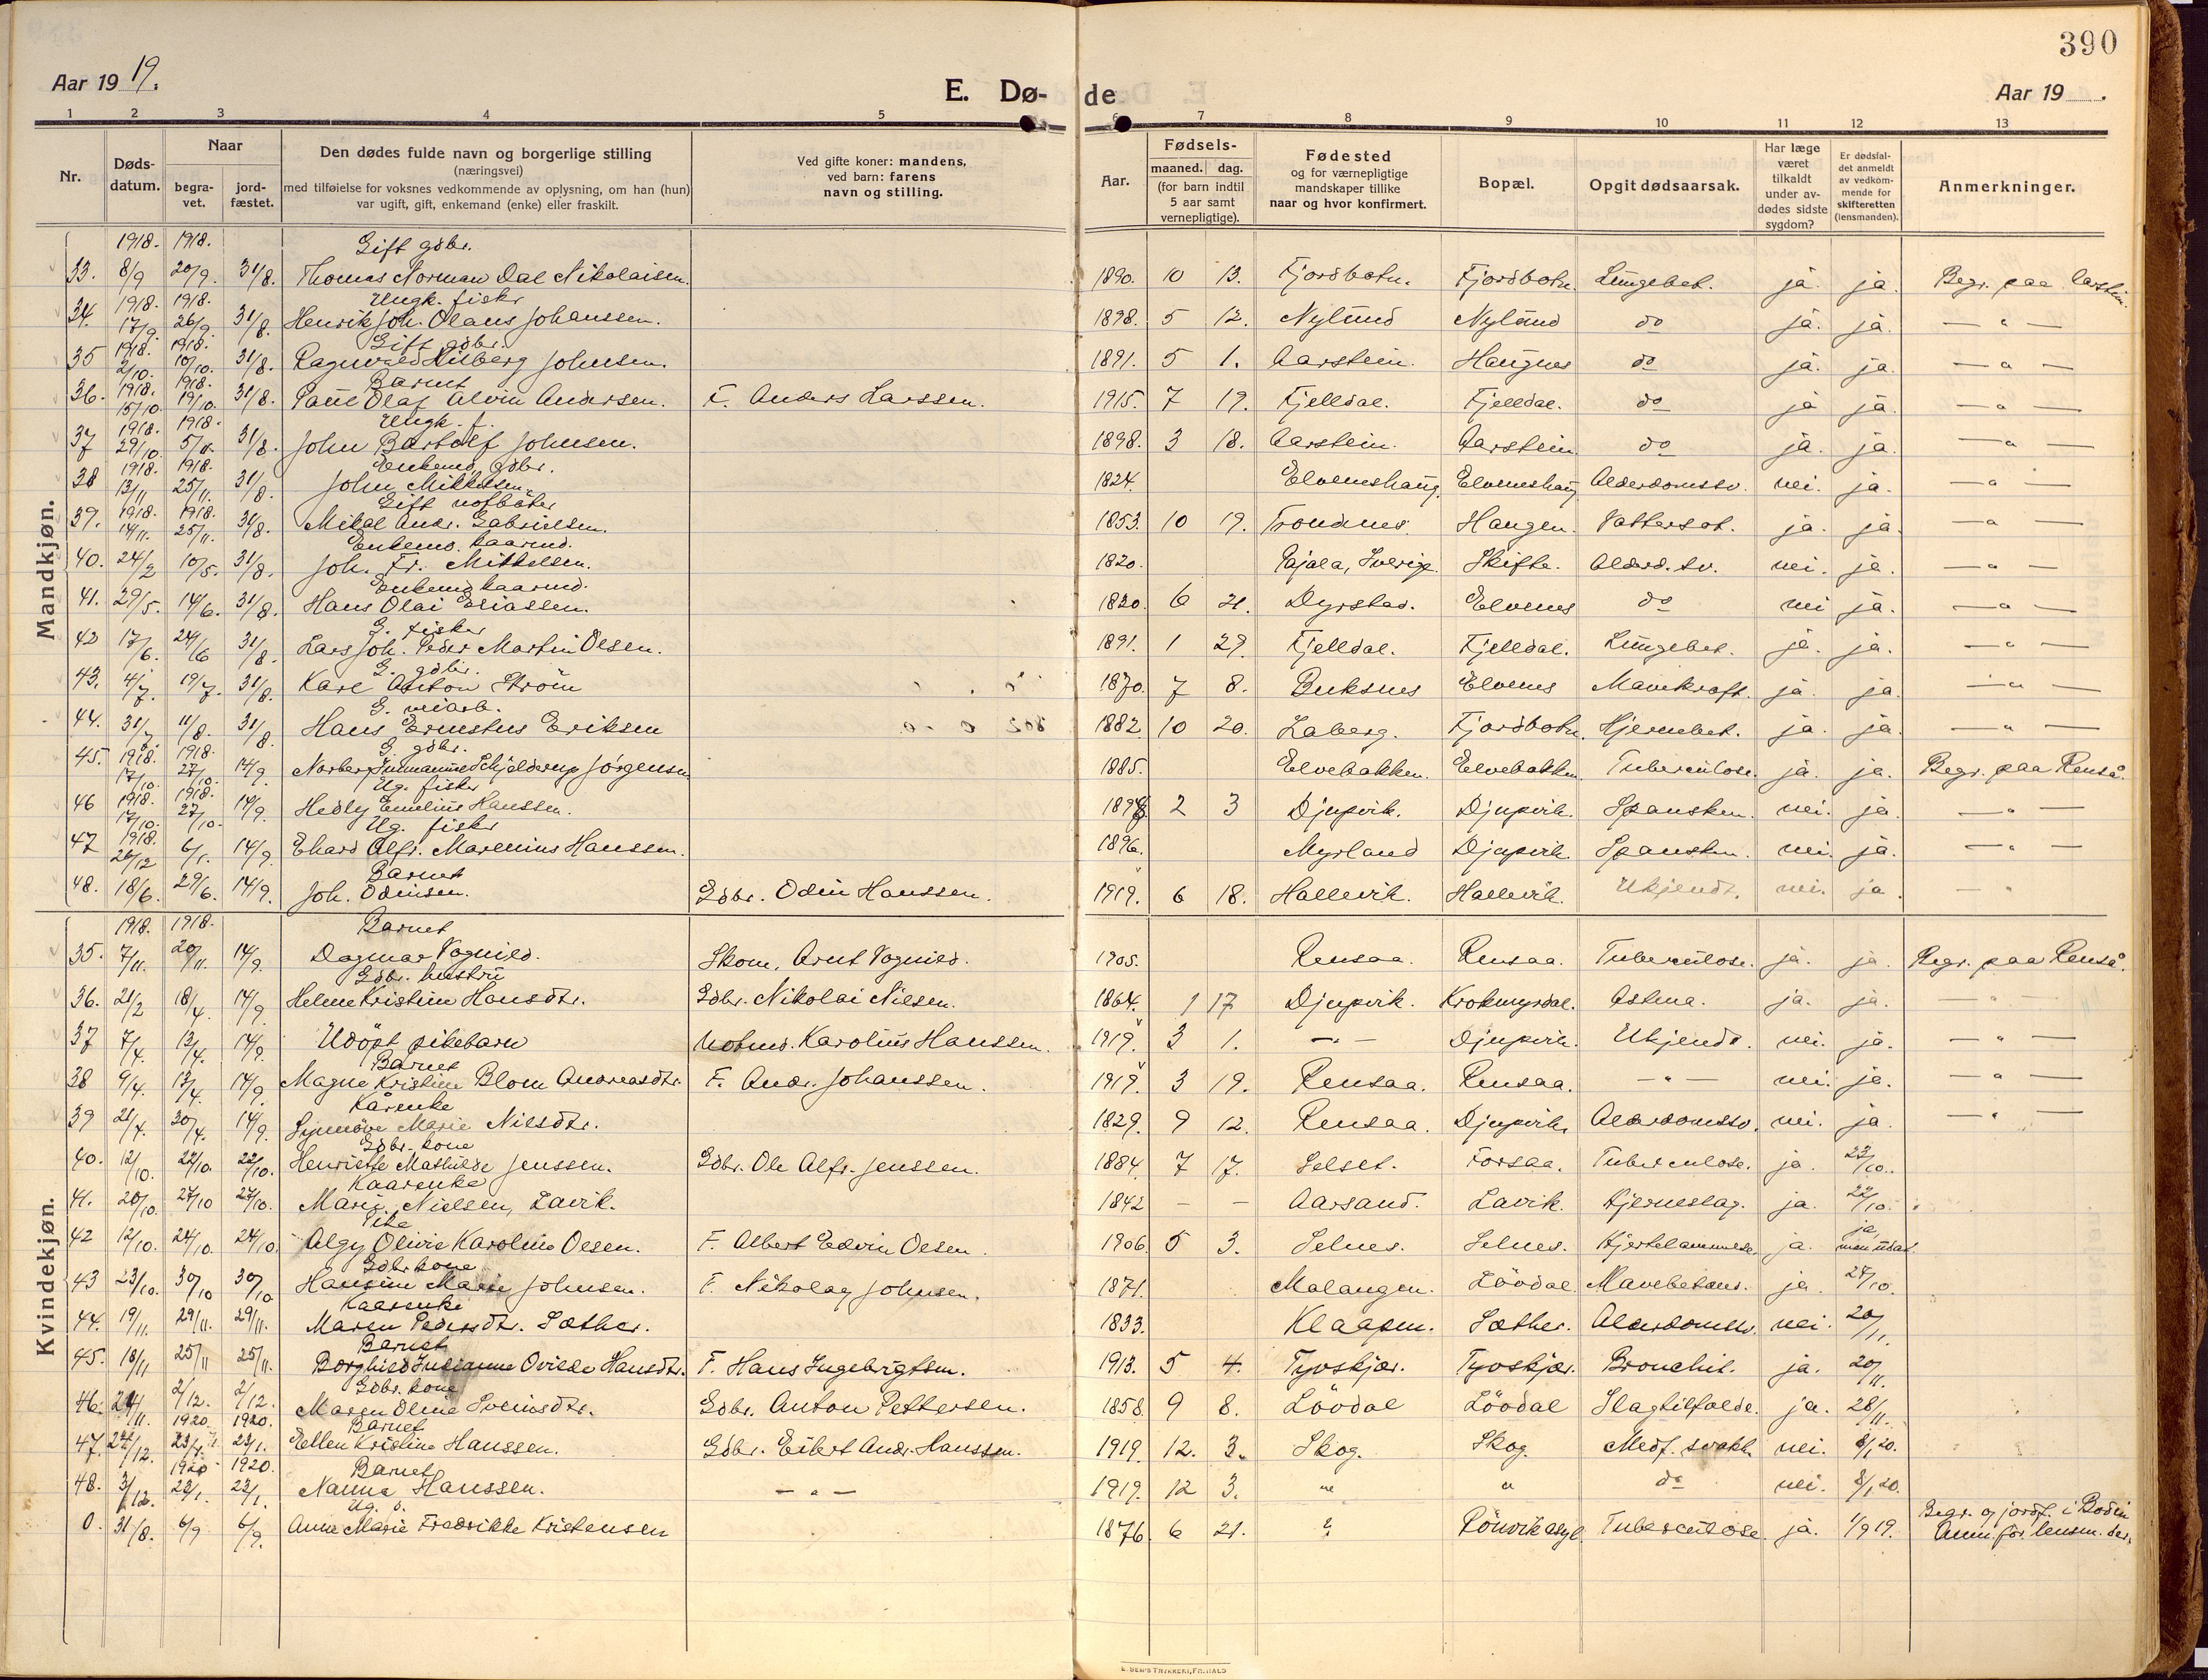 390
Aar 19 19.
E. Dø-
de
Aar 19 .
1 2 3 4 5 6 7 8 9 10 11 12 13
Nr. Døds-datum. Naar begra-vet. jord-fæstet. Den dødes fulde navn og borgerlige stilling (næringsvei) med tilføielse for voksnes vedkommende av oplysning, om han (hun) var ugift, gift, enkemand (enke) eller fraskilt. Ved gifte koner: mandens, ved barn: farens navn og stilling.
Aar. Fødsels- maaned. dag. (for barn indtil 5 aar samt vernepligtige). Fødested og for værnepligtige mandskaper tillike naar og hvor konfirmert. Bopæl. Opgit dødsaarsak. Har læge været tilkaldt under av-dødes sidste sygdom? Er dødsfal-det anmeldt av vedkom-mende for skifteretten (lensmanden). Anmerkninger.
Mandkjøn.
1918. 1918. Gift gdbr.
33. 8/9 20/9. 31/8. Thomas Norman Dal Nikolaisen. 1890. 10 13. Fjordbotn. Fjordbotn. Lungebet. ja. ja. Begr. paa
1918. 1918. Ungk. fisker
34. 17/9 26/9. 31/8. Henrik Joh. Olaus Johanssen. 1898. 5 12. Nylund Nylund do ja. ja. — " —
1918. 1918. Gift gdbr.
35 2/10. 10/10. 31/8. Ragnvald Hilberg Johnsen. 1891. 5 1. Aarstein. Haugnes do ja. ja. — " —
1918. 1918. Barnet
36. 15/10. 19/10. 31/8. Paul Olaf Alvin Andersen. F. Anders Larssen. 1915. 7 19. Fjelldal. Fjelldal. do ja ja. — " —
1918. 1918. Ungk. f.
37 29/10. 5/11. 31/8. John Bartolf Johnsen. 1898. 3 18. Aarstein. Aarstein do ja. ja. — " —
1918. 1918. Enkemd. gdbr.
38 13/11 25/11. 31/8. John Mikkelsen. 1824. Elveneshaug. Elveneshaug Alderdomssv. nei. ja. — " —
1918. 1918. Gift notbøter
39. 14/11. 25/11. 31/8. Mikal Andr. Gabrielsen. 1853. 10 19. Trondnes. Haugen. Vattersot. ja. ja. — " —
Enkemd. kaarmd.
40. 24/2 10/5. 31/8. Joh. Fr. Mikkelsen. 1820. Pajala, Sverige. Skifte. Alderd. sv. nei. ja. — " —
Enkemd kaarmd.
41. 29/5. 14/6. 31/8. Hans Olai Eliassen. 1830. 6 21. Dyrstad. Elvenes do nei ja. — " —
G. fisker
42 17/6. 24/6 31/8. Lars Joh. Peder Martin Olsen. 1891. 1 29. Fjelldal. Fjelldal. Lungebet. ja. ja. — " —
G. gdbr.
43. 4/7. 19/7. 31/8. Karl Anton Strøm 1870. 7 8. Buksnes Elvenes Mavekræft. ja. ja. — " —
G. veiarb.
44. 31/7 11/8. 31/8. Hans Ernestus Eriksen 1882. 10 20. Laberg. Fjordbotn. Hjernebet. ja. ja. — " —
1918. 1918. G. gdbr.
45. 17/10. 27/10. 14/9. Norberg Schjelderup Jørgensen 1885. Elvebakken. Elvebakken. Tuberculose. ja. ja. Begr. paa Renså.
1918. 1918. Ug. fisker
46 17/10. 27/10. 14/9. Hedly Emelius Hanssen. 2 3 Djupvik. Djupvik. Spansken. nei. ja. — " —
1918. Ug. fisker
47 26/12 6/1. 14/9. Ehard Alfr. Marenius Hanssen. 1896. Myrland Djupvik. Spansken. nei. ja. — " —
Barnet
48. 18/6. 29/6. 14/9. Joh. Odinsen. Gdbr. Odin Hanssen. 1919. 6 18. Hallevik. Hallevik. Ukjendt. nei. ja. — "
Kvindekjøn.
1918. 1918. Barnet
35. 7/11. 20/11. 14/9. Dagmar Vognild. Skom. Arnt Vognild. 1905. Rensaa. Rensaa. Tuberculose. ja. ja. Begr. paa Renså.
Gdbr. hustru
36. 21/2 18/4. 14/9. Helene Kristine Hansdtr. Gdbr. Nikolai Nilsen. 1864. 1 17 Djupvik. Krokmyrdal. Astma. ja. ja. — " —
37 7/4. 13/4. 14/9. Udöpt pikebarn Karolius Hanssen. 1919. 3 1. — " — Djupvik. Ukjendt. nei. ja. — " —
Barnet
38 9/4. 13/4. 14/9. Magne Kristine Blom Andreasdtr. F. Andr. Johanssen. 1919. 3 19. Rensaa. Rensaa. — " — nei. ja. — " —
Kårenke
39 21/4. 30/4. 14/9. Synnöve Marie Nilsdtr. 1829. 9 12. Rensaa. Djupvik. Alderdomssv. nei. ja. — " —
Gdbr. kone
40. 12/10. 22/10. 22/10. Henriette Mathilde Jenssen. Gdbr. Ole Alfr. Jenssen. 1884. 7 17. Selset. Forsaa. Tuberculose. ja. 23/10.
Kaarenke
41. 20/10. 27/10 27/10. Marie Nielsen, Lavik. 1842 — — Aarsand. Lavik. Hjerneslag. ja. 22/10.
Pike
42 12/10. 24/10. 24/10. Algy Olivie Karoline Olsen. F. Albert Edvin Olsen. 1906. 5 3. Selnes. Selnes. Hjertelammelse. ja. ja,
Gdbr kone
43 23/10. 30/10 30/10 Hansine Marie Johnsen. F. Nikolay Johnsen. 1871. Malangen. Löødal. ja. 24/10.
Kaarenke
44. 19/11. 29/11. 29/11. Maren Pedersdtr. Sæther. 1833. Klaapen. Sæther. Alderdomssv. nei. 20/11.
Barnet
45. 18/11 25/11 25/11. Borghild Julianne Ovilde Hansdtr. F. Hans Ingebrigtsen. 1913. 5 4. Tyvskjær. Tyvskjær. Bronchit. ja. 20/11.
Gdbr. kone
46. 24/11. 2/12. 2/12. Maren Oline Svensdtr. Gdbr. Anton Pettersen. 1858. 9 8. Löødal Löødal Slagtilfælde. ja. 28/11.
1920. 1920. Barnet
47. 22/12. 23/1. 23/1. Ellen Kristine Hanssen. Gdbr. Eilert Andr. Hanssen. 1919. 12. 3. Skog. Skog Medf. svakh. nei. 8/1 20.
1920 1920. Barnet
48. 3/12. 23/1. 23/1. Nanna Hanssen. — " — 1919. 12 3. " " do nei. 8/1 20.
Ug.
0. 31/8. 6/9 6/9. Anna Marie Fredrikke Kristensen 1876. 6 21. Rönvik asyl. Tuberculose. ja. 1/9 19. Begr. og jordf. i Bodin
Anm. for lensm. der.